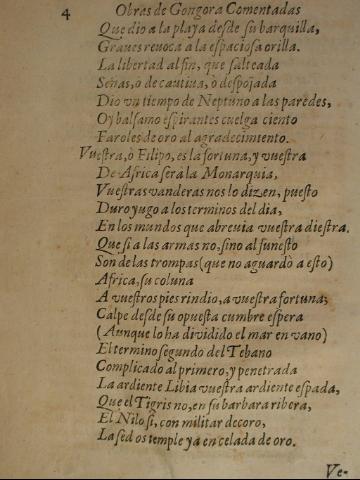 4 Obras de Gongora Comentadas
Que dio a la playa desde su barquilla,
Graues reuoca a la espaciosa orilla.
La libertad al fin, que salteada
Señas, ò de cautiua, ò despojada
Dio un tiempo de Neptuno a las paredes,
Oy balsamo espirantes cuelga ciento
Faroles de oro al agradecimiento.
Vuestra, ò Filipo, es la fortuna, y vuestra
De Africa serà la Monarquia,
Vuestras vanderas nos lo dizen, puesto
Duro yugo a los terminos del dia,
En los mundos que abreuia vuestra diestra.
Que si a las armas no, sino al funesto
Son de las trompas (que no aguardò a esto)
Africa, su coluna
A vuestros pies rindio, a vuestra fortuna;
Calpe desde su opuesta cumbre espera
(Aunque lo ha dividido el mar en vano)
El termino segundo del Tebano
Complicado al primero, y penetrada
La ardiente Libia vuestra ardiente espada,
Que el Tigris no, en su barbara ribera,
El Nilo si, con militar decoro,
La sed os temple ya en celada de oro.
Ve-